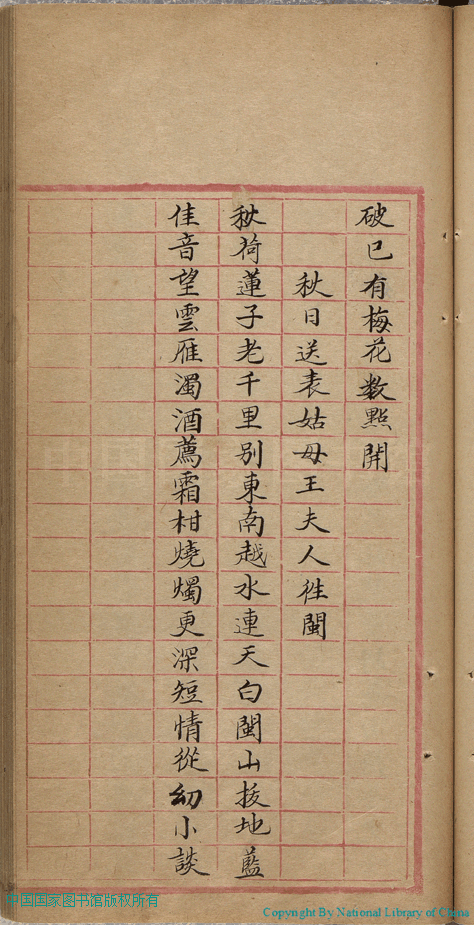 破已有梅花数點開
秋日送表姑母王夫人徃閩
秋荷蓮子老千里别東南越水連天白閩山拔地藍
佳音望雲雁濁酒薦霜柑燒燭更深短情從幼小談
中国国家图书馆版权所有
Copyright By National Library of China